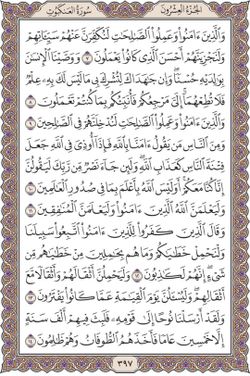 الجزء العشرون سورة العنكبوت
والذين ءامنوا وعملوا الصالحات لنكفرن عنهم سيئاتهم
ولنجزينهم أحسن الذي كانوا يعملون ٧ ووصينا الإنسان
بوالديه حسنا وإن جاهداك لتشرك بي ما ليس لك به علم
فلا تطعهما إلي مرجعكم فأنبئكم بما كنتم تعملون ٨
والذين ءامنوا وعملوا الصالحات لندخلنهم في الصالحين ٩
ومن الناس من يقول ءامنا بالله فإذا أوذي في الله جعل
فتنة الناس كعذاب الله ولئن جاء نصر من ربك ليقولن
إنا كنا معكم أوليس الله بأعلم بما في صدور العالمين ١٠
وليعلمن الله الذين ءامنوا وليعلمن المنافقين ١١
وقال الذين كفروا للذين ءامنوا اتبعوا سبيلنا
ولنحمل خطاياكم وما هم بحاملين من خطاياهم من
شيء إنهم لكاذبون ١٢ وليحملن أثقالهم وأثقالا مع
أثقالهم وليسئلن يوم القيامة عما كانوا يفترون ١٣
ولقد أرسلنا نوحا إلى قومه فلبث فيهم ألف سنة
إلا خمسين عاما فأخذهم الطوفان وهم ظالمون ١٤
٣٩٧